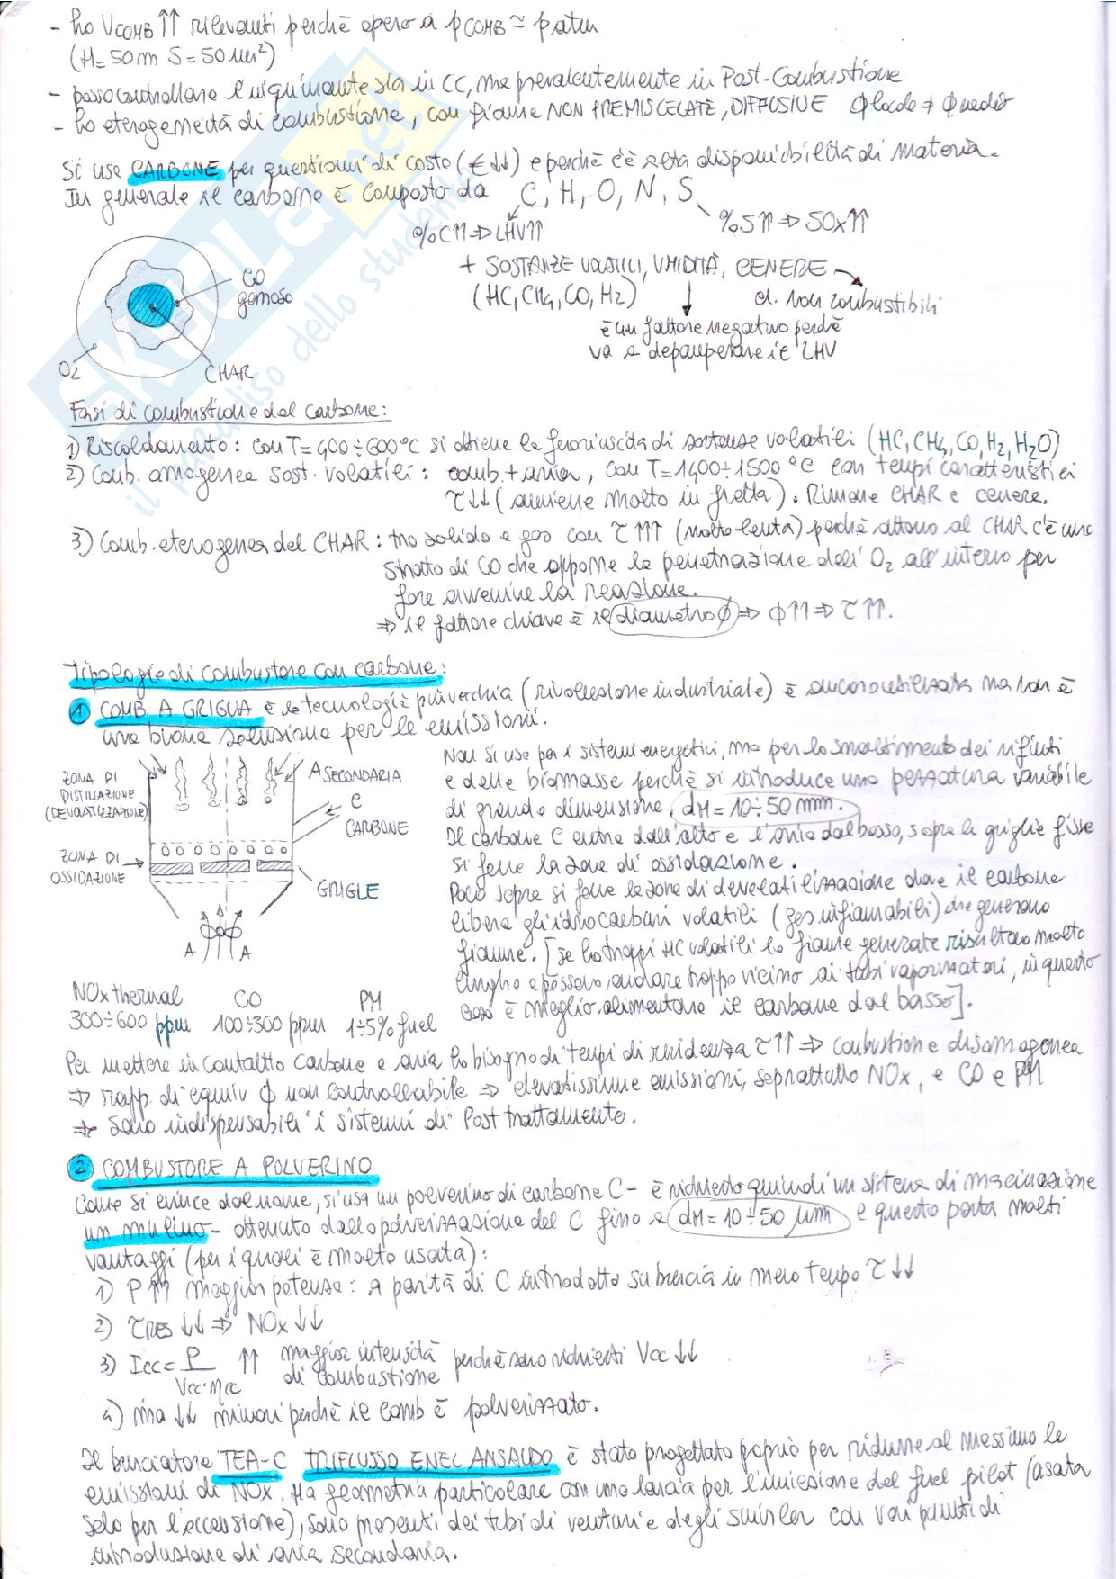 - ho VCOMB ↑↑ rilevanti perchè opero a pCOMB ≃ patm
(H=50m S=50m²)
- posso controllare l'inquinante sia in CC, ma prevalentemente in Post-Combustione
- ho eterogeneità di combustione, con fiamme NON PREMISCELATE, DIFFUSIVE ϕlocale ≠ ϕmedio
Si usa CARBONE per questioni di costo (€↓↓) e perchè c'è alta disponibilità di materia.
In generale il carbone è composto da C, H, O, N, S
%C↑↑ ⇒ LHV↑↑
%S↑↑ ⇒ SOx↑↑
+ SOSTANZE VOLATILI, UMIDITÀ, CENERE
(HC, CH4, CO, H2)
el. non combustibili
è un fattore negativo perchè
va a depauperare il LHV
CO
gassoso
O2
CHAR
Fasi di combustione del carbone:
1) Riscaldamento: con T=400÷600°C si ottiene la fuoriuscita di sostanze volatili (HC, CH4, CO, H2, H2O)
2) Comb. omogenea sost. volatili: comb.+aria, con T=1400÷1500°C con tempi caratteristici
τ↓↓ (avviene molto in fretta). Rimane CHAR e cenere.
3) Comb. eterogenea del CHAR: tra solido e gas con τ↑↑↑ (molto lenta) perchè attorno al CHAR c'è uno
strato di CO che oppone la penetrazione dell'O2 all'interno per
fare avvenire la reazione.
⇒ il fattore chiave è il diametro ϕ ⇒ ϕ↑↑ ⇒ τ↑↑.
Tipologie di combustore con carbone:
1 COMB A GRIGLIA è la tecnologia più vecchia (rivoluzione industriale) è ancora utilizzata ma non è
una buona soluzione per le emissioni.
ZONA DI
DISTILLAZIONE
(DEVOLATILIZZAZIONE)
A SECONDARIA
C
CARBONE
ZONA DI
OSSIDAZIONE
GRIGLIE
A A
Non si usa per i sistemi energetici, ma per lo smaltimento dei rifiuti
e delle biomasse perchè si introduce una pezzatura variabile
di grande dimensione, dM=10÷50 mm.
Il carbone C entra dall'alto e l'aria dal basso, sopra le griglie fisse
si forma la zona di ossidazione.
Poco sopra si forma la zona di devolatilizzazione dove il carbone
libera gli idrocarburi volatili (gas infiammabili) che generano
fiamme. [se ho troppi HC volatili le fiamme generate risultano molto
lunghe e possono andare troppo vicino ai tubi vaporizzatori, in questo
caso è meglio alimentare il carbone dal basso].
NOx thermal CO PM
300÷600 ppm 100÷300 ppm 1÷5% fuel
Per mettere in contatto carbone e aria ho bisogno di tempi di residenza τ↑↑ ⇒ combustione disomogenea
⇒ rapp. di equiv ϕ non controllabile ⇒ elevatissime emissioni, soprattutto NOx, e CO e PM
⇒ Sono indispensabili i sistemi di Post trattamento.
2 COMBUSTORE A POLVERINO
Come si evince dal nome, si usa un polverino di carbone C - è richiesto quindi un sistema di macinazione
un mulino - ottenuto dalla polverizzazione del C fino a dM=10÷50 μm e questo porta molti
vantaggi (per i quali è molto usata):
1) P↑↑ maggior potenza: a parità di C introdotto si brucia in meno tempo τ↓↓
2) τRES ↓↓ ⇒ NOx↓↓
3) Icc = P / Vcc·pcc ↑↑ maggiore intensità di combustione perchè sono richiesti Vcc↓↓
4) ma ↓↓ minori perchè il comb è polverizzato.
Il bruciatore TEA-C TRIFLUSSO ENEL ANSALDO è stato progettato proprio per ridurre al massimo le
emissioni di NOx. Ha geometria particolare con una lancia per l'iniezione del fuel pilot (usata
solo per l'accensione), sono presenti dei tubi di venturi e degli swirler con vari punti di
introduzione di aria secondaria.